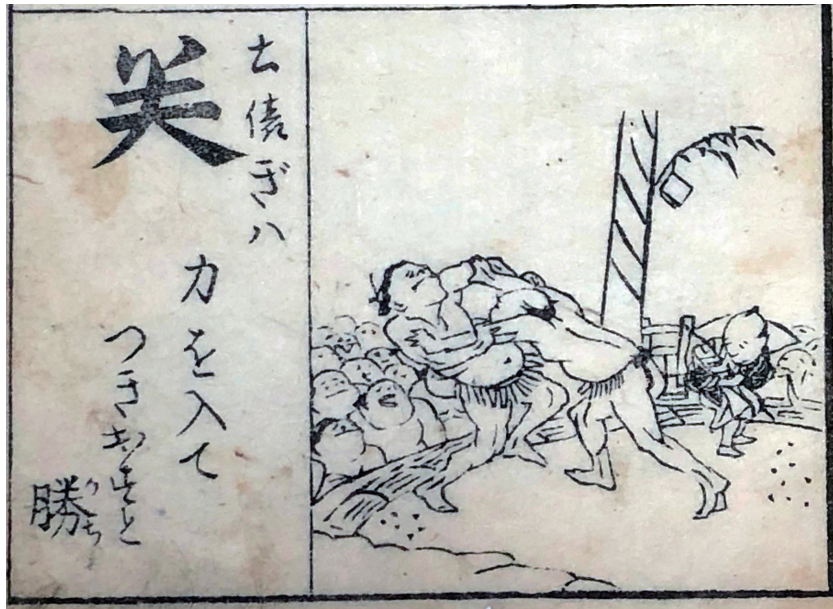 土俵ぎハ
力を入て
つき出すと
勝
かち